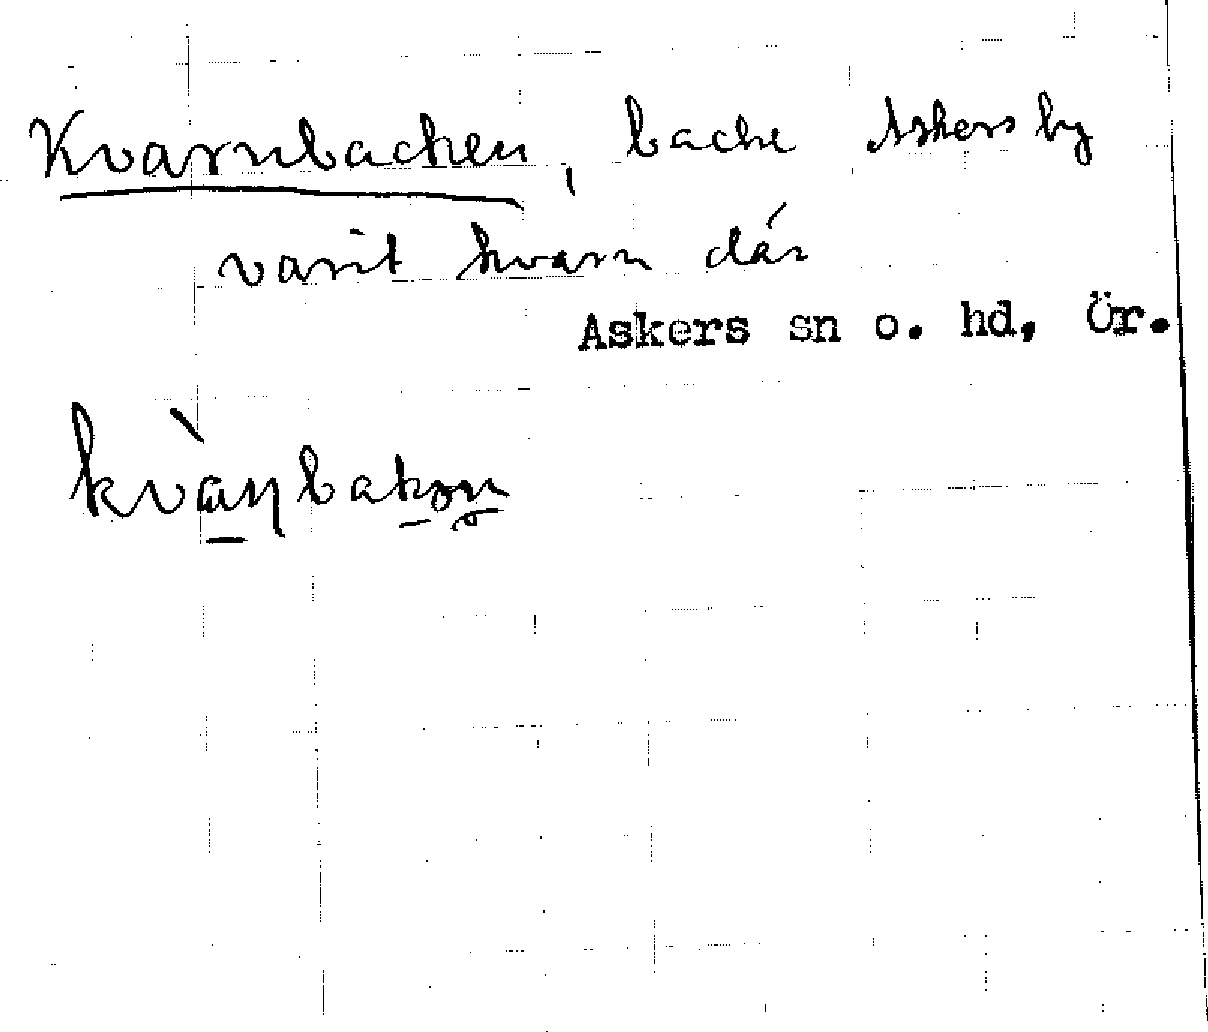 Kvarnbacken, backe Askers by
varit kvarn där
Askers sn o. hd, Ör.
kvàɳbakən